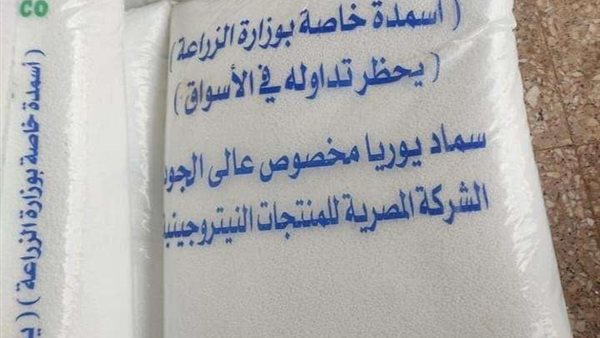 ( أسمدة خاصة بوزارة الزراعة )
( يحظر تداوله في الأسواق )
سماد يوريا مخصوص عالى الجود
الشركة المصرية للمنتجات النيتروجينية
CO
( أسمدة خاصة بوزارة الزراعة ) ( ي